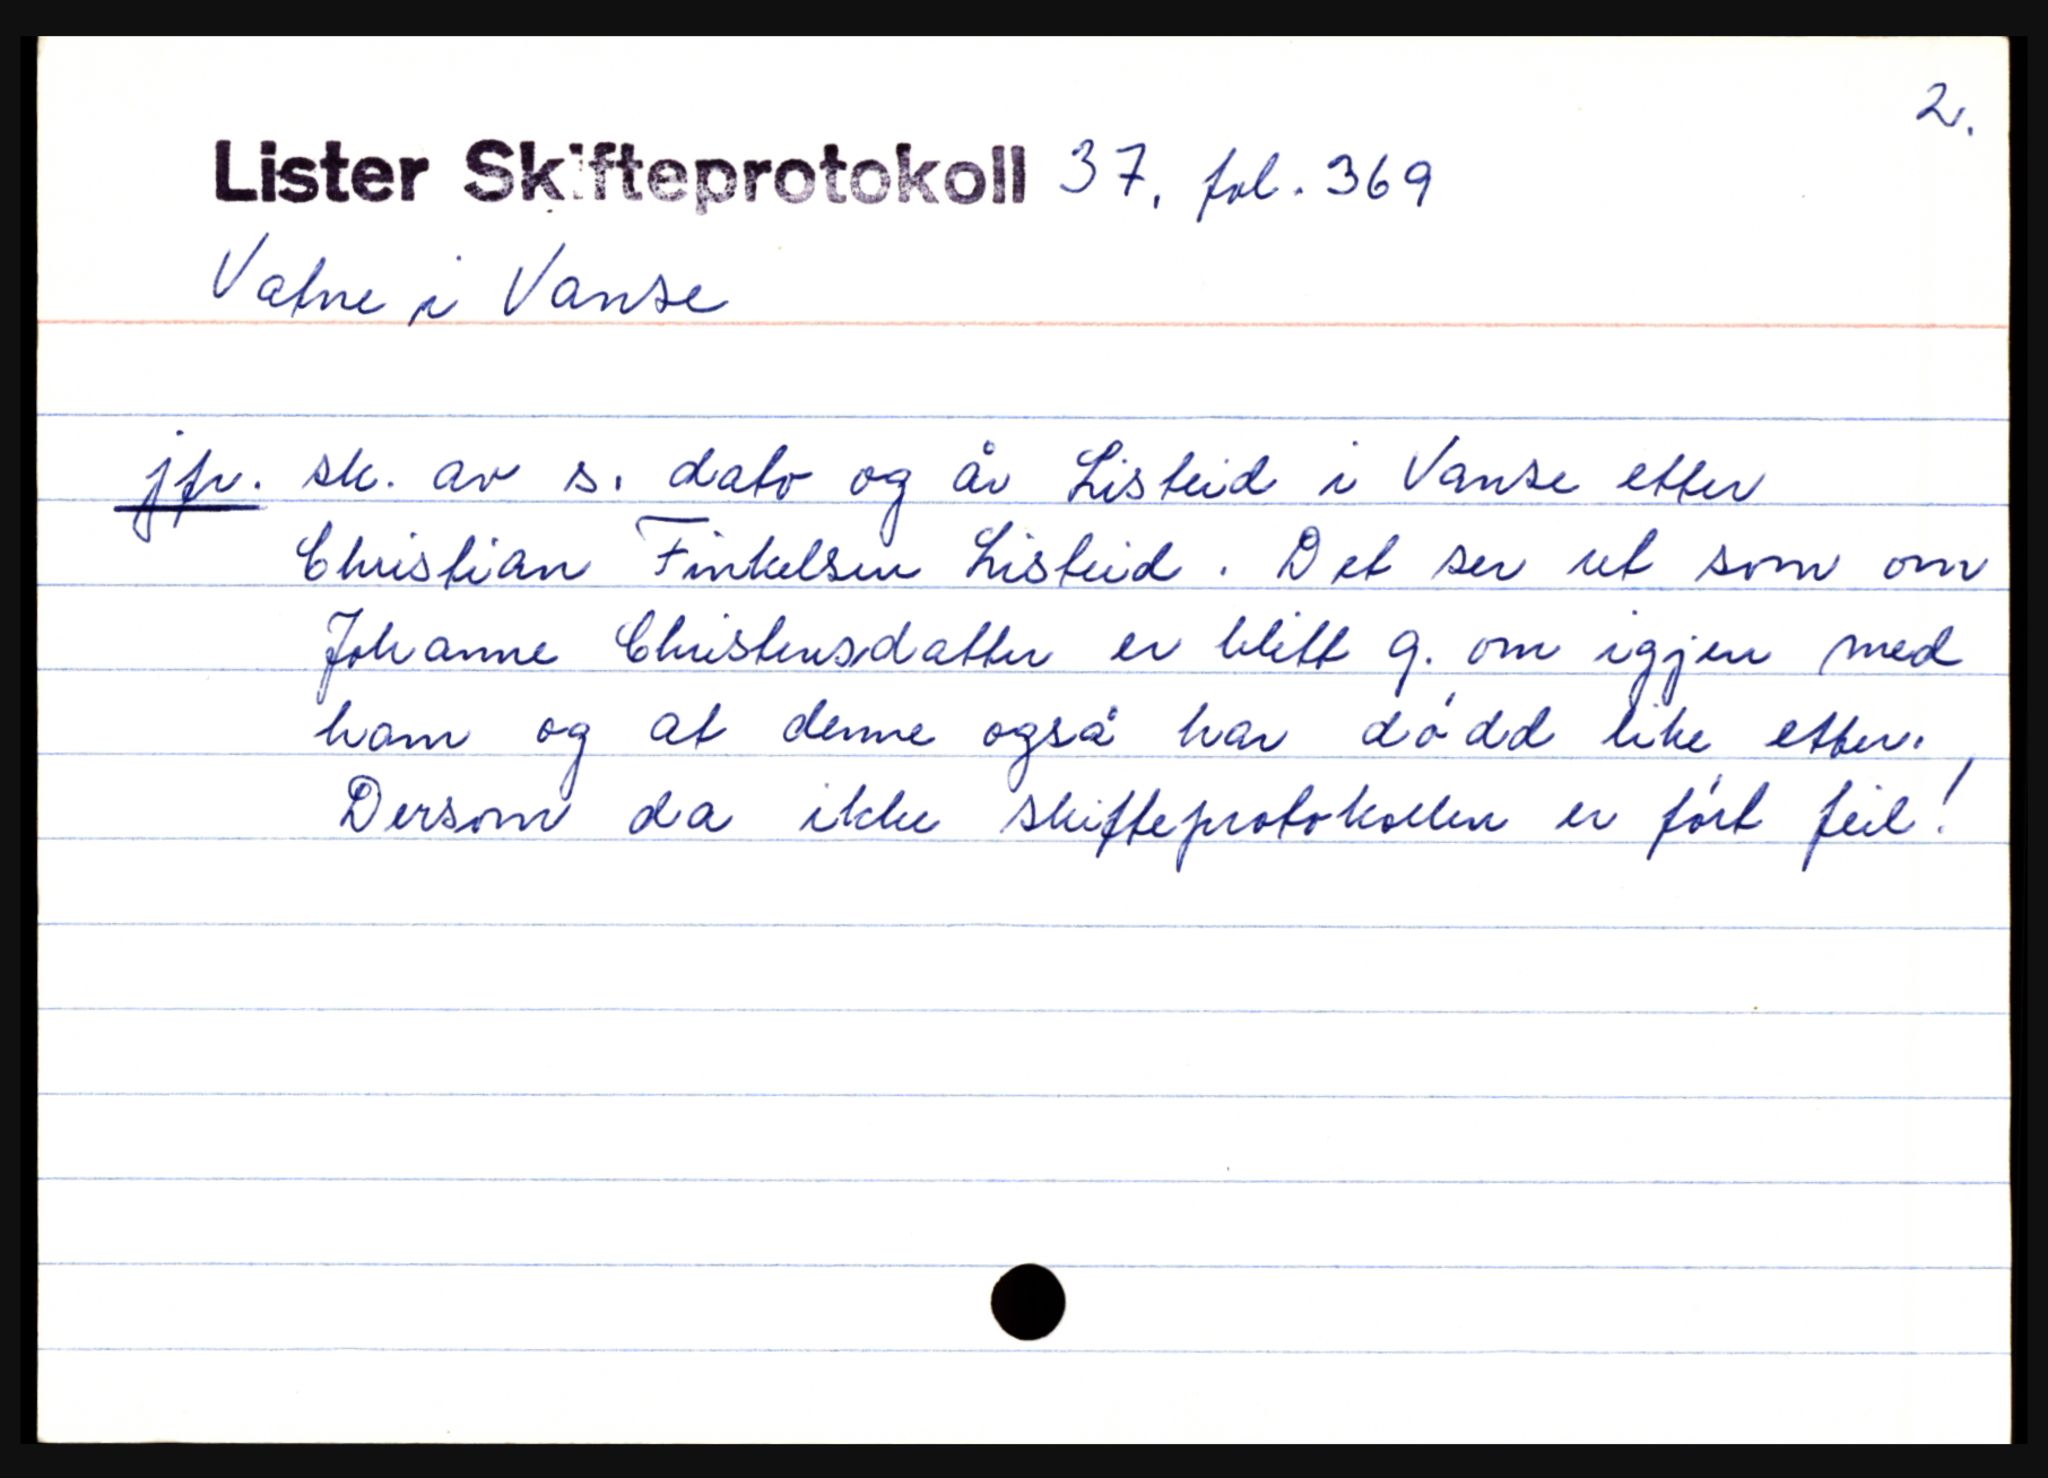 2.
Lister Skifteprotokoll 37, fol. 369
Vatne i Vanse
jfr. sk. av s. dato og år Listeid i Vanse etter
Christian Finkelsen Listeid. Det ser ut som om
Johanne Christensdatter er blitt g. om igjen med
ham og at denne også har dødd like etter.
Dersom da ikke skifteprotokollen er ført feil!